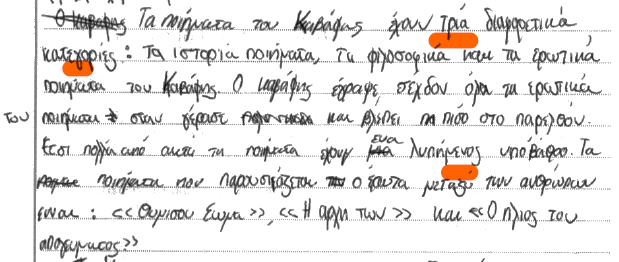 Τα ποιήματα του Καβάφης έχουν τριά διαφορετικά
κατεγορίες : Τα ιστορία ποιήματα, τα φιλοσοφικά και τα ερωτικά
ποιηματα του Καβάφης. Ο καβάφης έγραφε σέχδον όλα τα ερωτικά
του ποιηματα οταν γέρασε και βλέπει πισο στο παρελθόν.
Ετσι πολλα από αυτα τα ποιηματα έχουν ενα λυπήμενος υποβαθρο. Τα
ποιηματα που παρουσιάζεται ο έρωτα μεταξύ των ανθρώπων
ειναι : << Θυμισου Σωμα >>, << Η αρχη των >> και << Ο ηλιος του
απογευματος >>